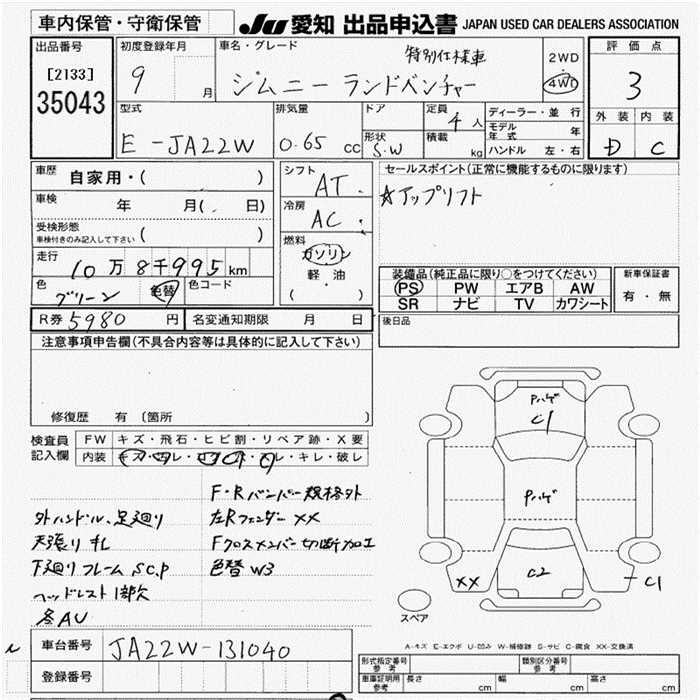 車内保管・守衛保管 JU 愛知 出品申込書 JAPAN USED CAR DEALERS ASSOCIATION
出品番号
[2133]
35043
初度登録年月
9 月
車名・グレード
特別仕様車
ジムニー ランドベンチャー
2WD
4WD
評価点
3
外装 内装
D C
型式
E-JA22W
排気量
0.65 cc
ドア
形状
S.W
定員
4 人
積載
kg
ディーラー・並行
モデル年式 年
ハンドル 左・右
車歴
自家用・( )
車検 年 月( 日)
受検形態
車検付きのみ記入して下さい ( )
走行
10万8千995km
色
グリーン 色替 色コード
シフト
AT
冷房
AC
燃料
ガソリン
軽油
( ・ )
セールスポイント(正常に機能するものに限ります)
☆アップリフト
装備品(純正品に限り○をつけてください)
PS PW エアB AW
SR ナビ TV カワシート
新車保証書
有・無
R券 5980 円 名変通知期限 月 日
後日品
注意事項申告欄(不具合内容等は具体的に記入して下さい)
修復歴 有 〔箇所 〕
検査員記入欄
FW キズ・飛石・ヒビ割・リペア跡・X要
内装 キズ・ ・キレ・破レ
F・Rバンパー規格外
外ハンドル、足廻り 左Rフェンダー XX
天張りキレ Fクロスメンバー切断加工
下廻りフレームS,C,P 色替W3
ヘッドレスト1部欠
冬AU
Pハゲ
C1
Pハゲ
C2
XX
C1
スペア
A-キズ E-エクボ U-凹み W-補修跡 S-サビ C-腐食 XX-交換済
車台番号 JA22W-131040
登録番号
型式指定番号
参考
類別区分番号
参考
車庫証明用
参考
長さ cm 幅 cm 高さ cm